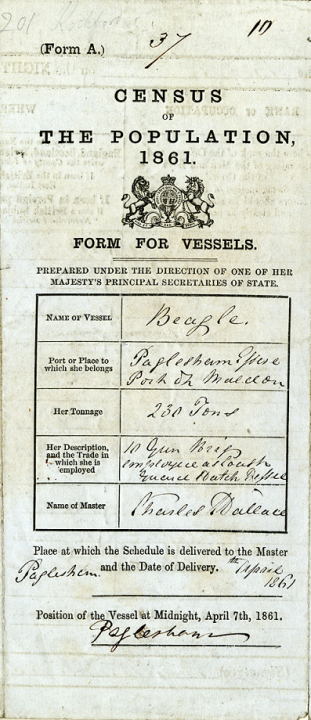 201
37
10
(Form A.)
CENSUS
OF
THE POPULATION,
1861.
FORM FOR VESSELS.
PREPARED UNDER THE DIRECTION OF ONE OF HER
MAJESTY'S PRINCIPAL SECRETARIES OF STATE.
NAME OF VESSEL
Beagle.
Port or Place to
which she belongs
Paglesham
Port of Maldon
Her Tonnage
230 Tons
Her Description,
and the Trade in
which she is
employed
10 Gun Brig
employed as Coast
Guard Watch Vessel
Name of Master
Charles Wallace
Place at which the Schedule is delivered to the Master
and the Date of Delivery.
Paglesham
April
1861
Position of the Vessel at Midnight, April 7th, 1861.
Paglesham